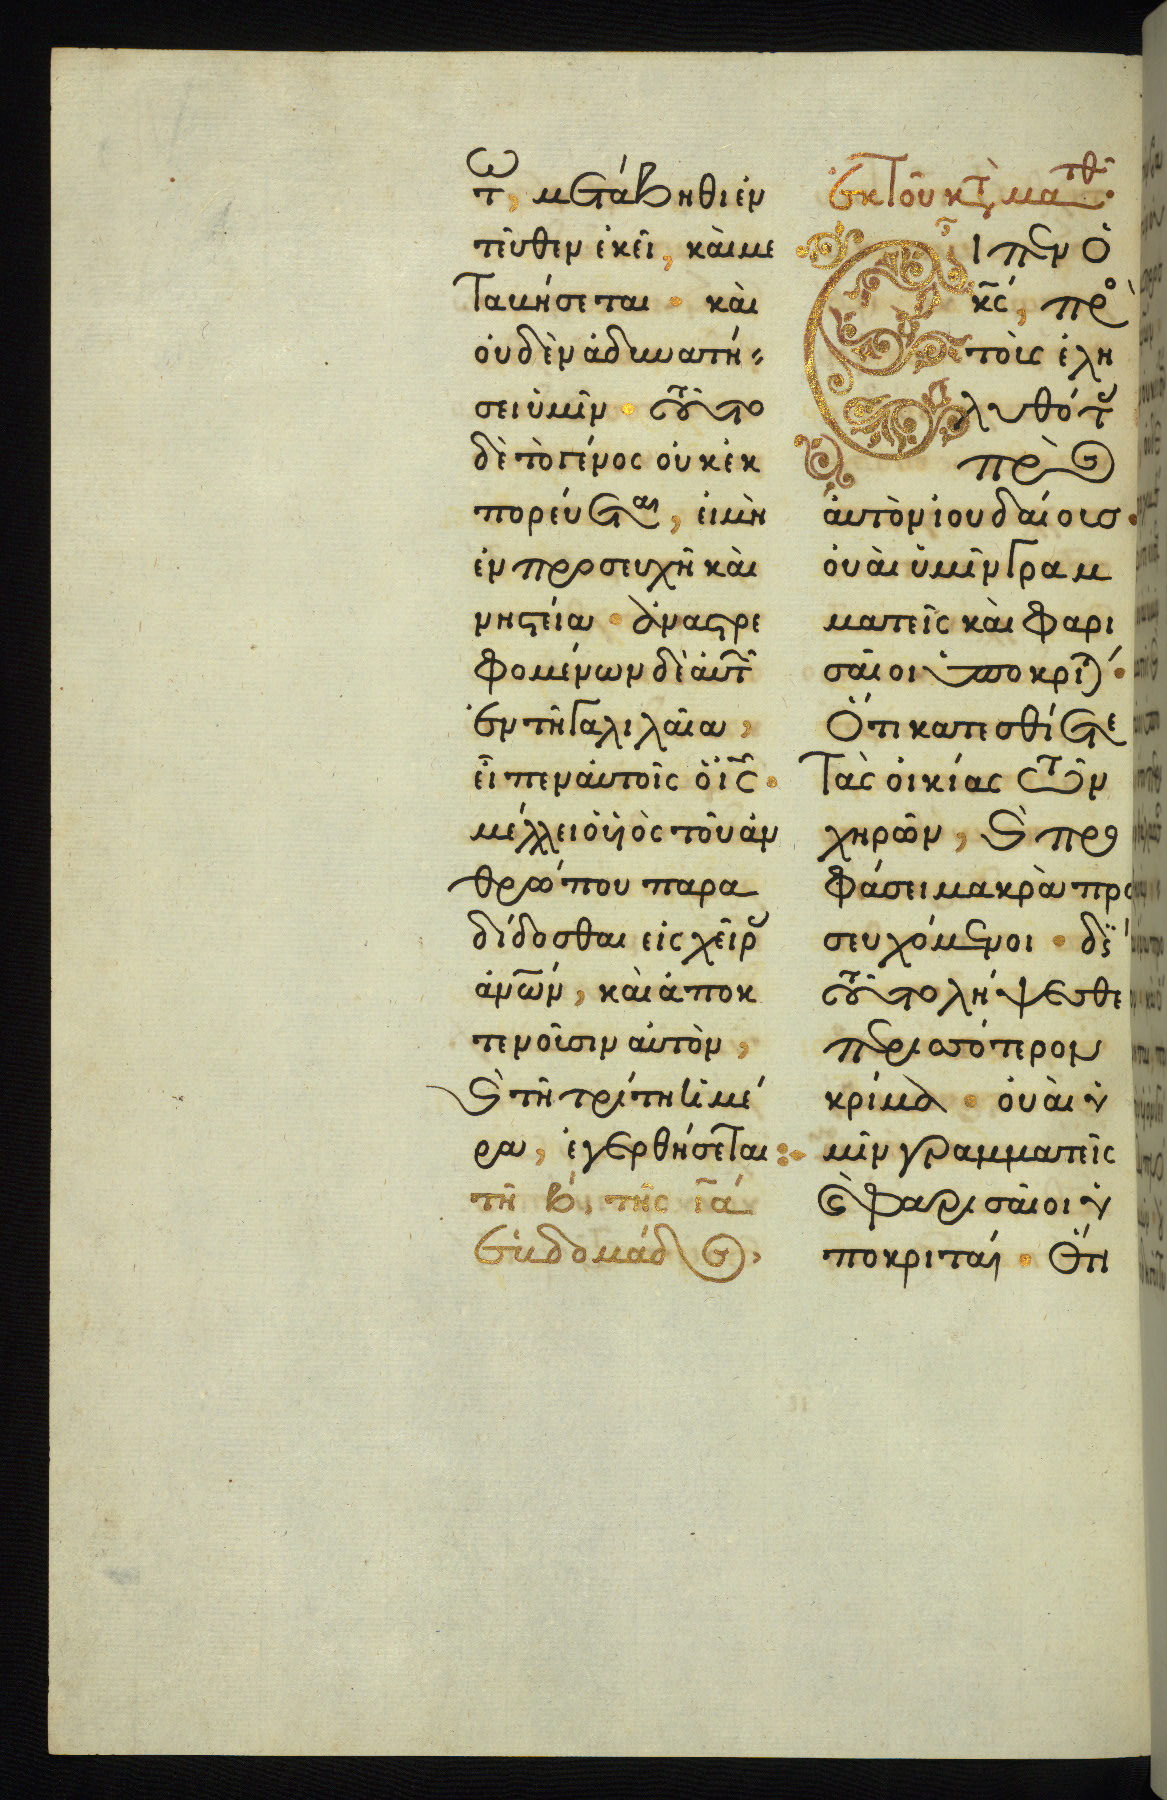 τω, μετάβηθι ἐν
τεῦθεν ἐκεῖ, καὶ με
ταβήσεται · καὶ
οὐδὲν ἀδυνατή
σει ὑμῖν · τοῦτο
δὲ τὸ γένος οὐκ ἐκ
πορεύεται, εἰ μὴ
ἐν προσευχῆ καὶ
νηστεία · ἀναστρε
φομένων δὲ αὐτ
ἐν τῆ Γαλιλαία,
εἶπεν αὐτοῖς ὁ ις ·
μέλλει ὁ υἱὸς τοῦ ἀν
θρώπου παρα
δίδοσθαι εἰς χεῖρ
ἀνων, καὶ ἀποκ
τενοῦσιν αὐτὸν,
καὶ τῆ τρίτη ἡμέ
ρα, ἐγερθήσεται :·
τῆ β, τῆς ια
ἑβδομάδος ·
ἐκ τοῦ κατὰ ματθ ·
Εἶπεν ὁ
κς, προ
τοὺς ἐλη
λυθότ
πρὸς
αὐτὸν ἰουδαίους ·
οὐαὶ ὑμῖν Γραμ
ματεῖς καὶ Φαρι
σαῖοι ὑποκριταί ·
Ὅτι κατεσθίετε
τὰς οἰκίας τῶν
χηρῶν, καὶ προ
φάσει μακρὰ προ
σευχόμενοι · δϊ
τοῦτο λήψεσθε
περισσότερον
κρίμα · οὐαὶ ὑ
μῖν γραμματεῖς
καὶ φαρισαῖοι ὑ
ποκριταί · Ὅτι